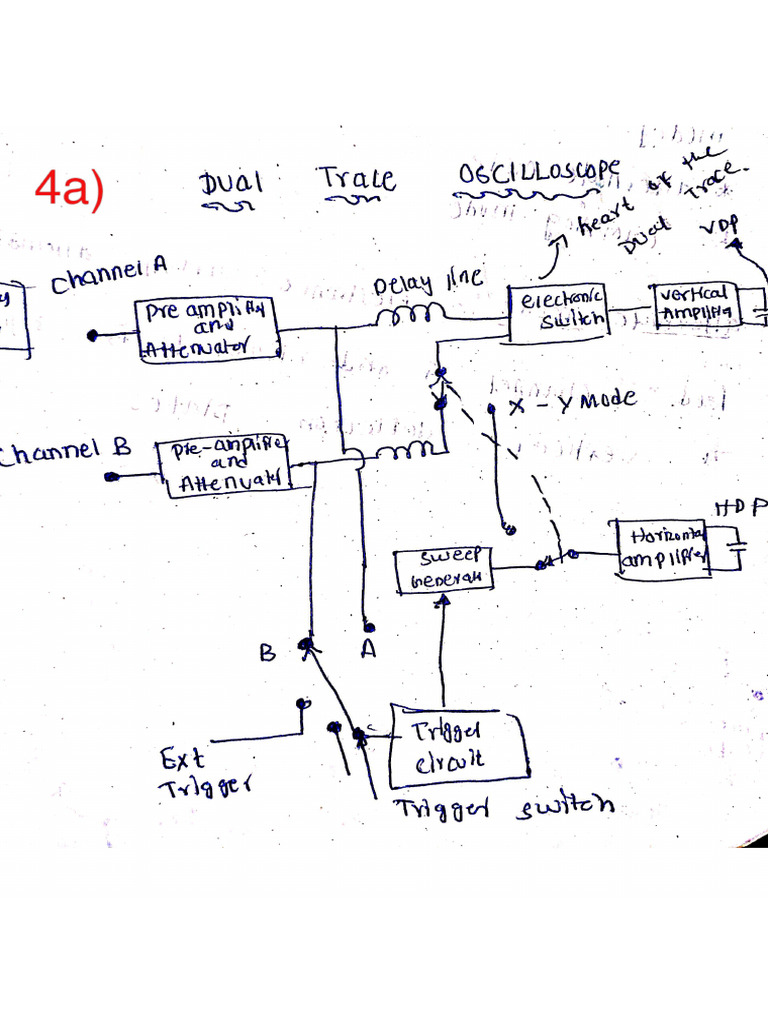 4a)
DUAL TRACE OSCILLOSCOPE
heart of the
Dual Trace.
VDP
Channel A
Delay line
Pre amplifier
and
Attenuator
electronic
switch
vertical
Amplifie
X - Y MODE
Channel B
Pre-amplifier
and
Attenuator
HDP
Horizontal
amplifier
sweep
Generator
B
A
C
Trigger
circuit
Ext
Trigger
Trigger switch